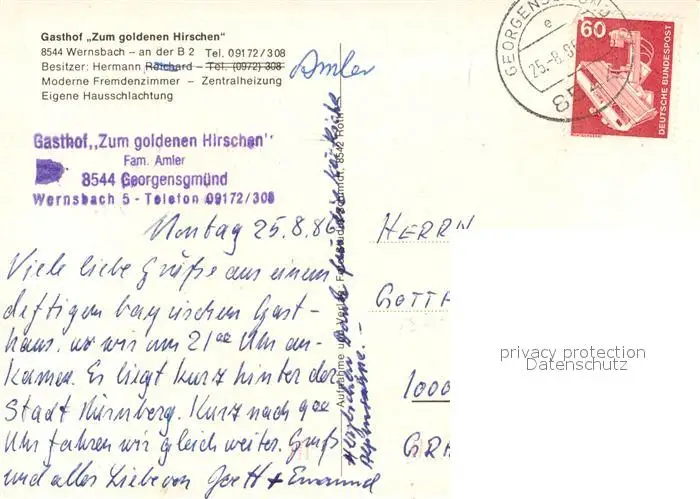 Gasthof „Zum goldenen Hirschen"
8544 Wernsbach – an der B 2 Tel. 09172/308
Besitzer: Hermann Reichard – Tel. (0972) 308 Amler
Moderne Fremdenzimmer – Zentralheizung
Eigene Hausschlachtung
Gasthof,,Zum goldenen Hirschen"
Fam. Amler
8544 Georgensgmünd
Wernsbach 5 - Telefon 09172/308
GEORGENSGMÜND
e
25.-8.86
8544
60
DEUTSCHE BUNDESPOST
Montag 25.8.86
Viele liebe Grüße aus einem
deftigen bayrischen Gast-
haus, wo wir um 21 00 Uhr an-
kamen. Es liegt kurz hinter der
Stadt Nürnberg. Kurz nach 9 00
Uhr fahren wir gleich weiter. Gruß
und alles Liebe von
Herzlichen Dank für die
Aufnahme und Verlag: 8542 Roth
HERRN
GOTTF
1000
GRA
privacy protection
Datenschutz